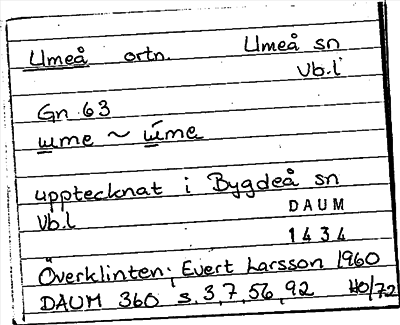 Umeå ortn. Umeå sn
Vb.l
Gn 63
ume ~ úme
upptecknat i Bygdeå sn
Vb.l DAUM
1434
Överklinten; Evert Larsson 1960
DAUM 360 s. 3, 7, 56, 92 HO/72